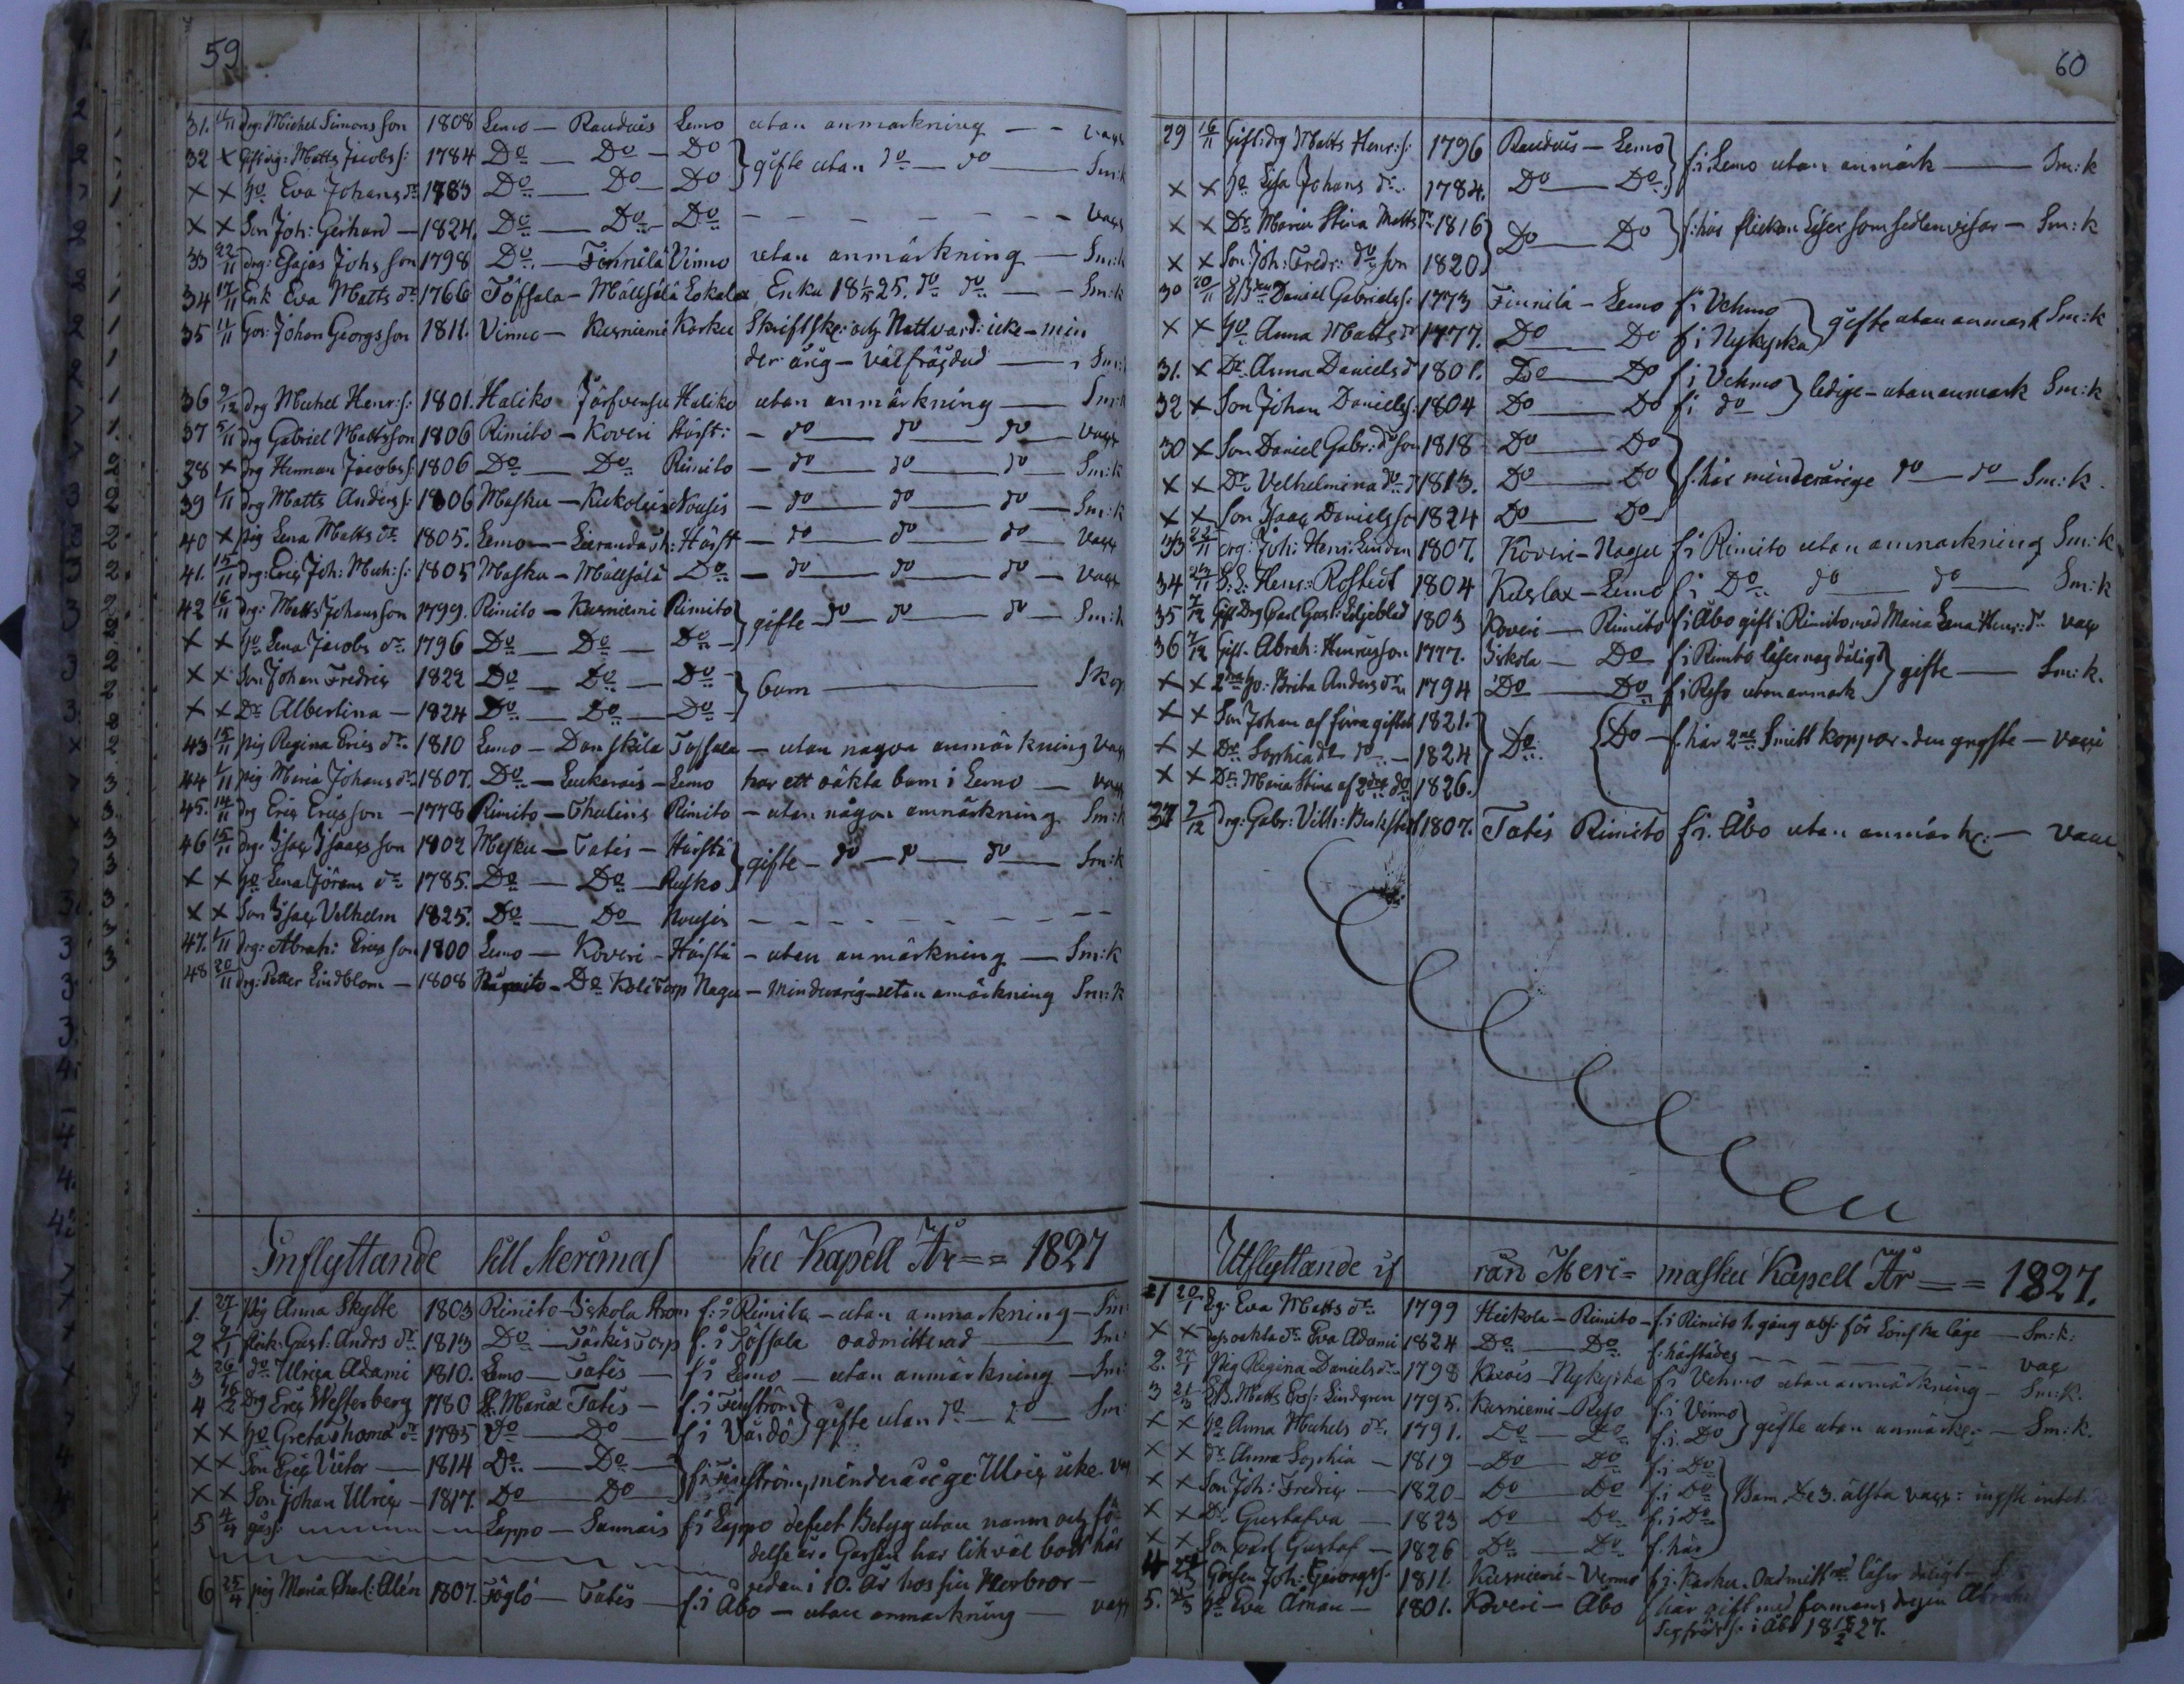 59
31. 11/11 drg: Michel Simons son 1808 Lemo — Rauduis Lemo utan anmärkning — —
32 × Gift drg: Matts Jacobs s: 1784 Do — Do — Do } gifte utan do — do — Sm:k
× × Ho Eva Johans dr 1783 Do — Do — Do
× × Son Joh: Gerhard — 1824. Do — Do — Do — — — — — — — vacc
33 22/11 drg: Esajas Johs son 1798 Do — Finnilä Vinmo utan anmärkning — Sm:k
34 17/11 Enk Eva Matts dr 1766 Töfsala — Mällsälä Lokalax Enka 18 25. do do — — Sm:k
35 11/11 Gos: Johan Georgsson 1811. Vinmo — Kusniemi Karku Skriftsk: och Nattvard: icke — min
der årig — välfräjdad —
36 9/12 drg Michel Henr: s: 1801. Haliko Järfvensu Haliko utan anmärkning —
37 5/11 drg Gabriel Mattsson 1806 Rimito — Koveri Härst: — do — do — do — vacc
38 × drg Herman Jacobs s: 1806 Do — Do Rimito — do — do — do — Sm:k
39 1/11 drg Matts Anders s: 1806 Masku — Kukolais Nousis — do — do — do — Sm:k
40 × pig Lena Matts dr 1805. Lemo — Härst — do — do — do — vacc
41. 15/11 drg: Eric Joh: Mich: s: 1805 Masku — Mällsälä Do — do — do — do — vacc
42 16/11 drg: Matts Johansson 1799. Rimito — Kusniemi Rimito } gifte — do — do — do — Sm:k
× × Ho Lena Jacobs dr 1796 Do — Do — Do —
× × Son Johan Fredric 1822 Do — Do — Do } barn —
× × Dr Albertina — 1824 Do — Do — Do
43 15/11 pig Regina Erics dr 1810 Lemo — Danskila Tofsala — utan nagon anmärkning vacc
44 1/11 pig Maria Johans dr 1807. Do — Luckarais — Lemo har ett oäkta barn i Lemo — vacc
45. 14/11 drg Eric Ericsson — 1778 Rimito — Thulinis Rimito — utan någon anmärkning Sm:k
46 15/11 drg: Isac Isaacs son 1802 Masku — Tatis — Härstä } gifte — do — do — do — Sm:k
× × Ho Lena Jörans dr 1785. Do — Do — Rusko
× × Son Isac Velhelm 1825. Do — Do Nousis — — — — — — — —
47. 1/11 drg: Abrah: Erics son 1800 Lemo — Koveri — Härstä — utan anmärkning — Sm:k
48 20/11 drg: Petter Lindblom — 1808 — Do Koli Torp Nagu — Minderarig — utan amärkning Sm:k
Inflyttande till Merimas ku Kapell År == 1827
1. 27/1 Pig Anna Skytte 1803 Rimito — Iskola f: i Rimito — utan anmarkning — Sm
2 flick: Gust: Andrs dr 1813 Do — Torp f. i Tofsala oadmitterad — Sm:
3 26/1 do Ulrica Adami 1810. Lemo — Tatis — f i Lemo — utan anmärkning — Sm:
4 16/2 Drg Eric Westerberg 1780 St. Maria Tatis — f. i Finström } gifte utan do — do — Sm:
× × Ho Greta Thoma dr 1785 Do — Do — f i Vårdö
× × Son Eric Victor — 1814 Do — Do — } f i Finström, minderårige Ulric icke
× × Son Johan Ulric — 1817. Do — Do —
5 4/4 goss: — Lappo — Sannais f i Lappo defect Betyg utan namn och fö
delse år. Gossen har likväl bott här
redan i 10. År hos sin Morbror —
6 25/4 pig Maria Charl: Alén 1807. Föglö — Tatis — f. i Åbo — utan anmarkning — vacc
60
29 16/11 Gift: drg Matts Henr: s: 1796 Rauduis — Lemo } f: i Lemo utan anmärk — Sm:k
× × Ho Lisa Johans dr 1784. Do — Do
× × Dr Maria Stina Matts dr 1816 } Do — Do } f: här flickan läser som sedlen visar — Sm:k
× × Son Joh: Fredr: do son 1820
30 20/11 Daniel Gabriels s: 1773 Finnilä — Lemo f i Vehmo } gifte utan anmark Sm:k
× × Ho Anna Matts dr 1777. Do — Do f i Nykyrka
31. × Dr Anna Daniels dr 1801. Do — Do f i Vehmo } ledige — utan anmark Sm:k
32 × Son Johan Daniels s: 1804 Do — Do f i do
30 × Son Daniel Gabr: do son 1818 Do — Do } f: här minderärige do — do — Sm:k.
× × Dr Velhelmina do dr 1813. Do — Do
× × Son Isaac Daniels s: 1824 Do — Do
33 22/11 drg: Joh: Henr: Lindan 1807. Koveri — Nagu f i Rimito utan anmarkning Sm:k
34 Henr: Rostedt 1804 Kuslax — Lemo f i Do do — do — Sm:k
35 7/12 Gift Drg Carl Gust: Liljeblad 1803 Koveri — Rimito f i Åbo gift i Rimito med Maria Lena Henr: dr vac
36 7/12 Gift. Abrah: Henricsson 1777. Iskola — Do f i Rimito läser nog däligt } gifte — Sm:k.
× × 2dra Ho: Brita Anders dr 1794 Do — Do f i Reso utan anmark
× × Son Johan af förra giftet 1821. } Do { Do — f. här 2ne Smitt koppor. den yngste — vacci
× × Dr Sophia do do — 1824
× × Dr Maria Stina af 2dra do 1826.
37 2/12 drg: Gabr: Vilh: 1807. Tatis Rimito f i. Åbo utan anmärk: — vacc
Utflyttande if rån Meri= masku Kapell År == 1827.
1 20/1 Eva Matts dr 1799 Heikola — Rimito — f: i Rimito 1. gång abs: för Lönska läge — Sm:k:
× × oakta dr Eva Adami 1824 Do — Do f: härstädes — — — —
2. 27/1 Pig Regina Daniels dr 1798 Karvis — Nykyrka f i Vehmo utan anmärkning — vac
3 21/3 Matts Ers s: Lindgren 1795. Kusniemi — Reso f: i Vinmo } gifte utan anmärk: — Sm:k.
× × Ho Anna Michels dr. 1791. Do — Do f: i. Do
× × dr Anna Sophia — 1819 Do — Do f: i Do } Barn. De 3. älsta vacc: ingste intet
× × Son Joh: Fredric — 1820 Do — Do f: i Do
× × Dr Gustafva — 1823 Do — Do f: i Do
× × Son Carl Gustaf — 1826 Do — Do f: här
4 Gossen Joh: Georgss. 1811. Kusniemi — Vermo f i. Karku. Oadmitt: läser daligt —
5. Ho Eva Åman — 1801. Koveri — Åbo f här gift med formans drgen
Segfrids s: i Åbo 18 27.